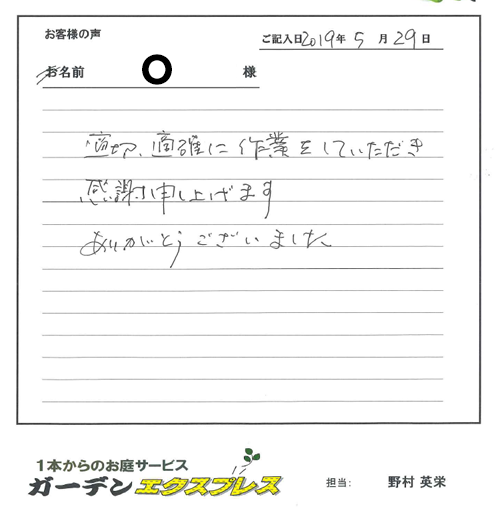 お客様の声
ご記入日2019年 5 月 29 日
お名前 様
適切、適確に作業をしていただき
感謝申し上げます
ありがとうございました
1本からのお庭サービス
ガーデンエクスプレス
担当: 野村 英栄